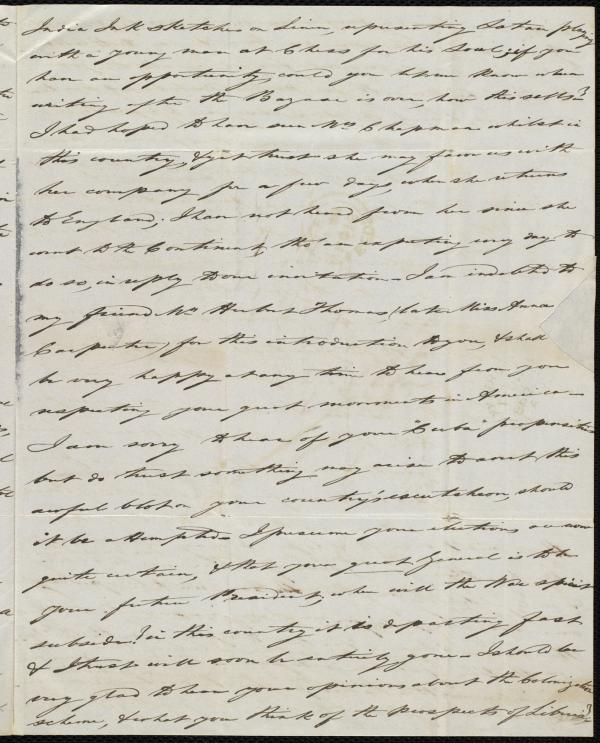 India Ink sketches on Linen, representing Satan playing
with a young man at Chess for his Soul; if you
have an opportunity, could you let me know when
writing after the Bazaar is over, how this sells?
I had hoped to have seen Mrs Chapman whilst in
this country, & yet trust she may favor us with
her company for a few days, when she returns
to England; I have not heard from her since she
went to the Continent, tho' am expecting every day to
do so, in reply to our invitation - I am indebted to
my friend Mrs Herbert Thomas (late Miss Anna
Carpenter) for this introduction to you, & shall
be very happy at any time to hear from you
respecting your great movements in America -
I am sorry to hear of your "Cuba" proposition
but do trust something may arise to avert this
awful blot on your country's escutcheon, should
it be attempted - I presume your elections are now
quite certain, & that your great General is to be
your future President, when will the War spirit
subside? in this country it is departing fast
& I trust will soon be entirely gone - I should be
very glad to hear your opinions about the Colonization
scheme, & what you think of the prospects of Liberia?